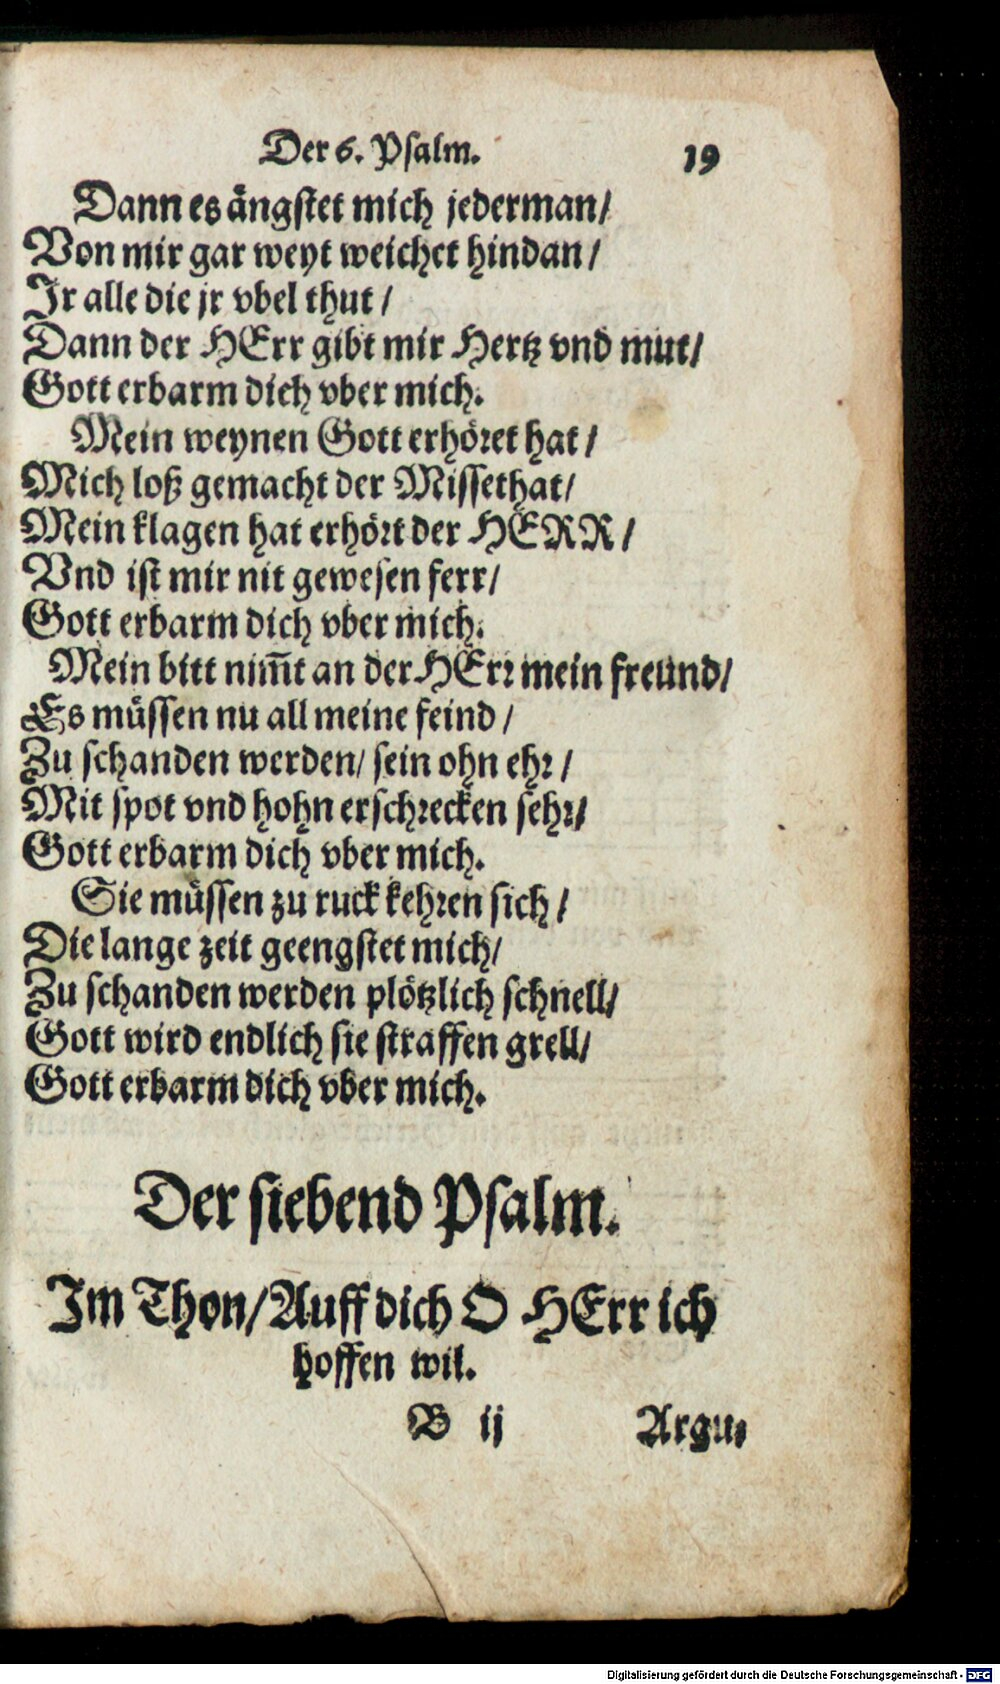 Der 6. Psalm. 19
Dann es ängstet mich jederman/
Von mir gar weyt weichet hindan/
Jr alle die jr vbel thut/
Dann der HErr gibt mir Hertz vnd mut/
Gott erbarm dich vber mich.
Mein weynen Gott erhöret hat/
Mich loß gemacht der Missethat/
Mein klagen hat erhört der HERR/
Vnd ist mir nit gewesen ferr/
Gott erbarm dich vber mich.
Mein bitt nim̃t an der HErr mein freund/
Es müssen nu all meine feind/
Zu schanden werden/ sein ohn ehr/
Mit spot vnd hohn erschrecken sehr/
Gott erbarm dich vber mich.
Sie müssen zu ruck kehren sich/
Die lange zeit geengstet mich/
Zu schanden werden plötzlich schnell/
Gott wird endlich sie straffen grell/
Gott erbarm dich vber mich.
Der siebend Psalm.
Im Thon/ Auff dich O HErr ich
hoffen wil.
B ij Argu-
Digitalisierung gefördert durch die Deutsche Forschungsgemeinschaft - DFG